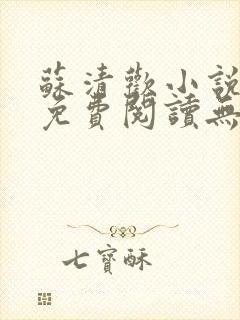 蘇清歡小說
免費閱讀無
七寶酥